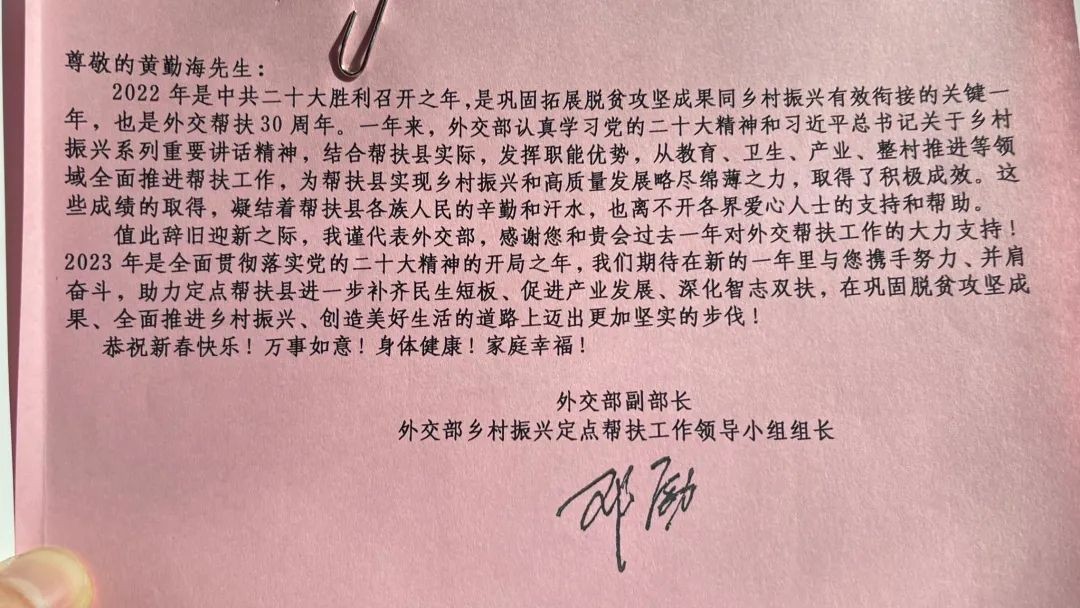 尊敬的黄勤海先生：
2022年是中共二十大胜利召开之年,是巩固拓展脱贫攻坚成果同乡村振兴有效衔接的关键一
年，也是外交帮扶30周年。一年来，外交部认真学习党的二十大精神和习近平总书记关于乡村
振兴系列重要讲话精神，结合帮扶县实际，发挥职能优势，从教育、卫生、产业、整村推进等领
域全面推进帮扶工作，为帮扶县实现乡村振兴和高质量发展略尽绵薄之力，取得了积极成效。这
些成绩的取得，凝结着帮扶县各族人民的辛勤和汗水，也离不开各界爱心人士的支持和帮助。
值此辞旧迎新之际，我谨代表外交部，感谢您和贵会过去一年对外交帮扶工作的大力支持！
2023年是全面贯彻落实党的二十大精神的开局之年，我们期待在新的一年里与您携手努力、并肩
奋斗，助力定点帮扶县进一步补齐民生短板、促进产业发展、深化智志双扶，在巩固脱贫攻坚成
果、全面推进乡村振兴、创造美好生活的道路上迈出更加坚实的步伐！
恭祝新春快乐！万事如意！身体健康！家庭幸福！
外交部副部长
外交部乡村振兴定点帮扶工作领导小组组长
邓励